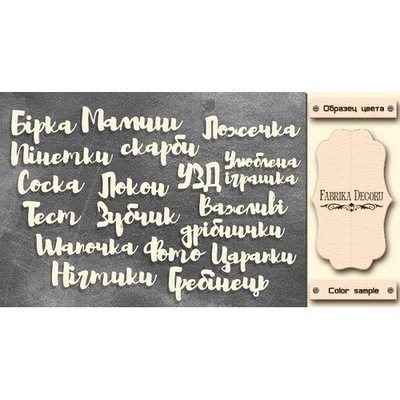 Бірка
Мамині скарби
Ложечка
Пінетки
Улюблена іграшка
Соска
Локон
УЗД
Тест
Зубчик
Важливі дрібнички
Шапочка
Фото
Царапки
Нігтики
Гребінець
Образец цвета
FABRIKA DECORU
Color sample